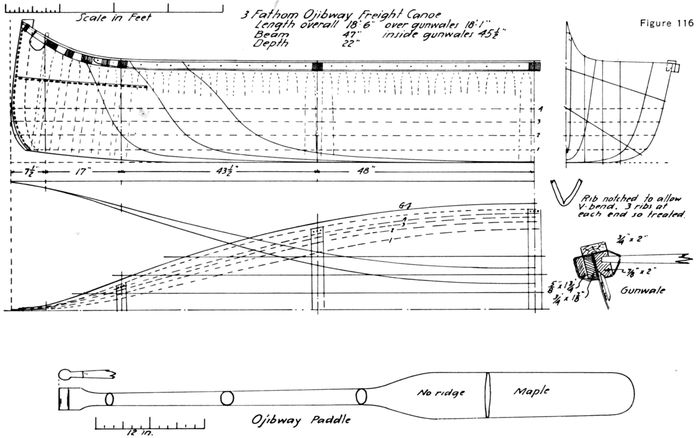 Scale in Feet
3 Fathom Ojibway Freight Canoe
Length overall 18'6" over gunwales 18'1"
Beam 47" inside gunwales 45½"
Depth 22"
Figure 116
4
3
2
1
7½" 17" 43½" 48"
Rib notched to allow
V-bend. 3 ribs at
each end so treated.
¾" x 2"
⅞" x 2"
Gunwale
No ridge Maple
12 in.
Ojibway Paddle